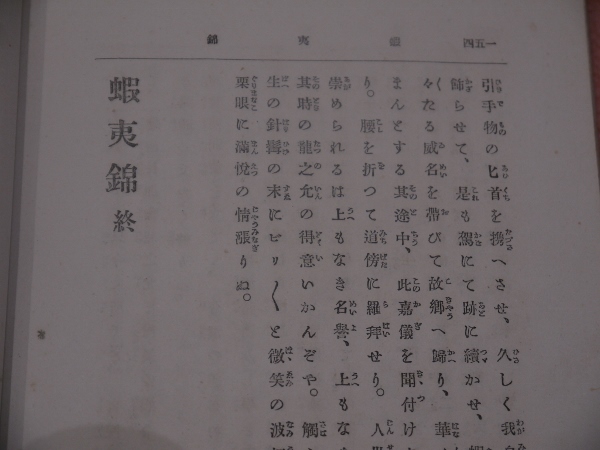 一五四
蝦夷錦
引手物の匕首を携へさせ、久しく我
飾らせて、是も駕にて跡に續かせ、
々たる威名を帶びて故鄕へ歸り、華
まんとする其途中、此嘉儀を聞付け
り。腰を折つて道傍に羅拜せり。人
崇められるは上もなき名譽、上もな
其時の龍之允の得意いかんぞや。觸
生の針鬚の末にピリ〳〵と微笑の波
栗眼に滿悅の情漲りぬ。
蝦夷錦 終